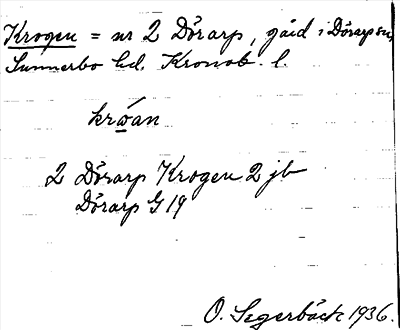 Krogen = nr 2 Dörarp, gård i Dörarp sn,
Sunnerbo hd. Kronob. l.
krωan
2 Dörarp Krogen 2 jb
Dörarp G 19
O. Segerbäck 1936.